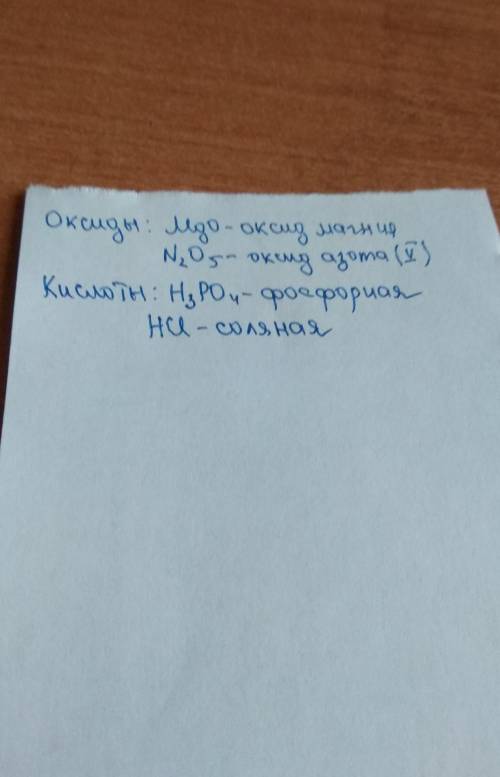 Оксиды: MgO - оксид магния
N₂O₅ - оксид азота (V)
Кислоты: H₃PO₄ - фосфорная
HCl - соляная